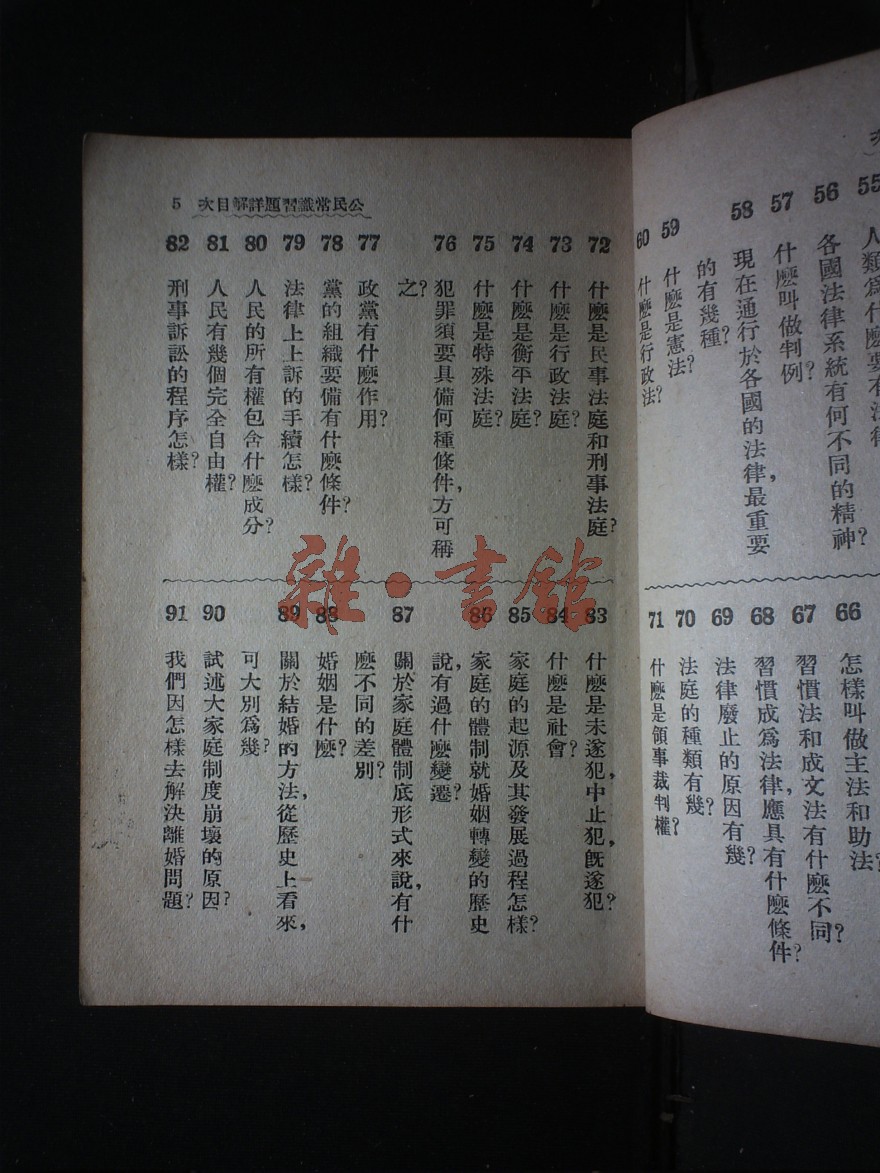 55 人類爲什麽要有法律
56 各國法律系統有何不同的精神?
57 什麽叫做判例?
58 現在通行於各國的法律,最重要
的有幾種?
59 什麽是憲法?
60 什麽是行政法?
66 怎樣叫做主法和助法?
67 習慣法和成文法有什麽不同?
68 習慣成爲法律,應具有什麽條件?
69 法律廢止的原因有幾?
70 法庭的種類有幾?
71 什麽是領事裁判權?
公民常識習題詳解目次 5
72 什麽是民事法庭和刑事法庭?
73 什麽是行政法庭?
74 什麽是衡平法庭?
75 什麽是特殊法庭?
76 犯罪須要具備何種條件,方可稱
之?
77 政黨有什麽作用?
78 黨的組織要備有什麽條件?
79 法律上上訴的手續怎樣?
80 人民的所有權包含什麽成分?
81 人民有幾個完全自由權?
82 刑事訴訟的程序怎樣?
83 什麽是未遂犯,中止犯,旣遂犯?
84 什麽是社會?
85 家庭的起源及其發展過程怎樣?
86 家庭的體制就婚姻轉變的歷史
說,有過什麽變遷?
87 關於家庭體制底形式來說,有什
麽不同的差別?
88 婚姻是什麽?
89 關於結婚的方法,從歷史上看來,
可大別爲幾?
90 試述大家庭制度崩壞的原因?
91 我們因怎樣去解決離婚問題?
雜·書館